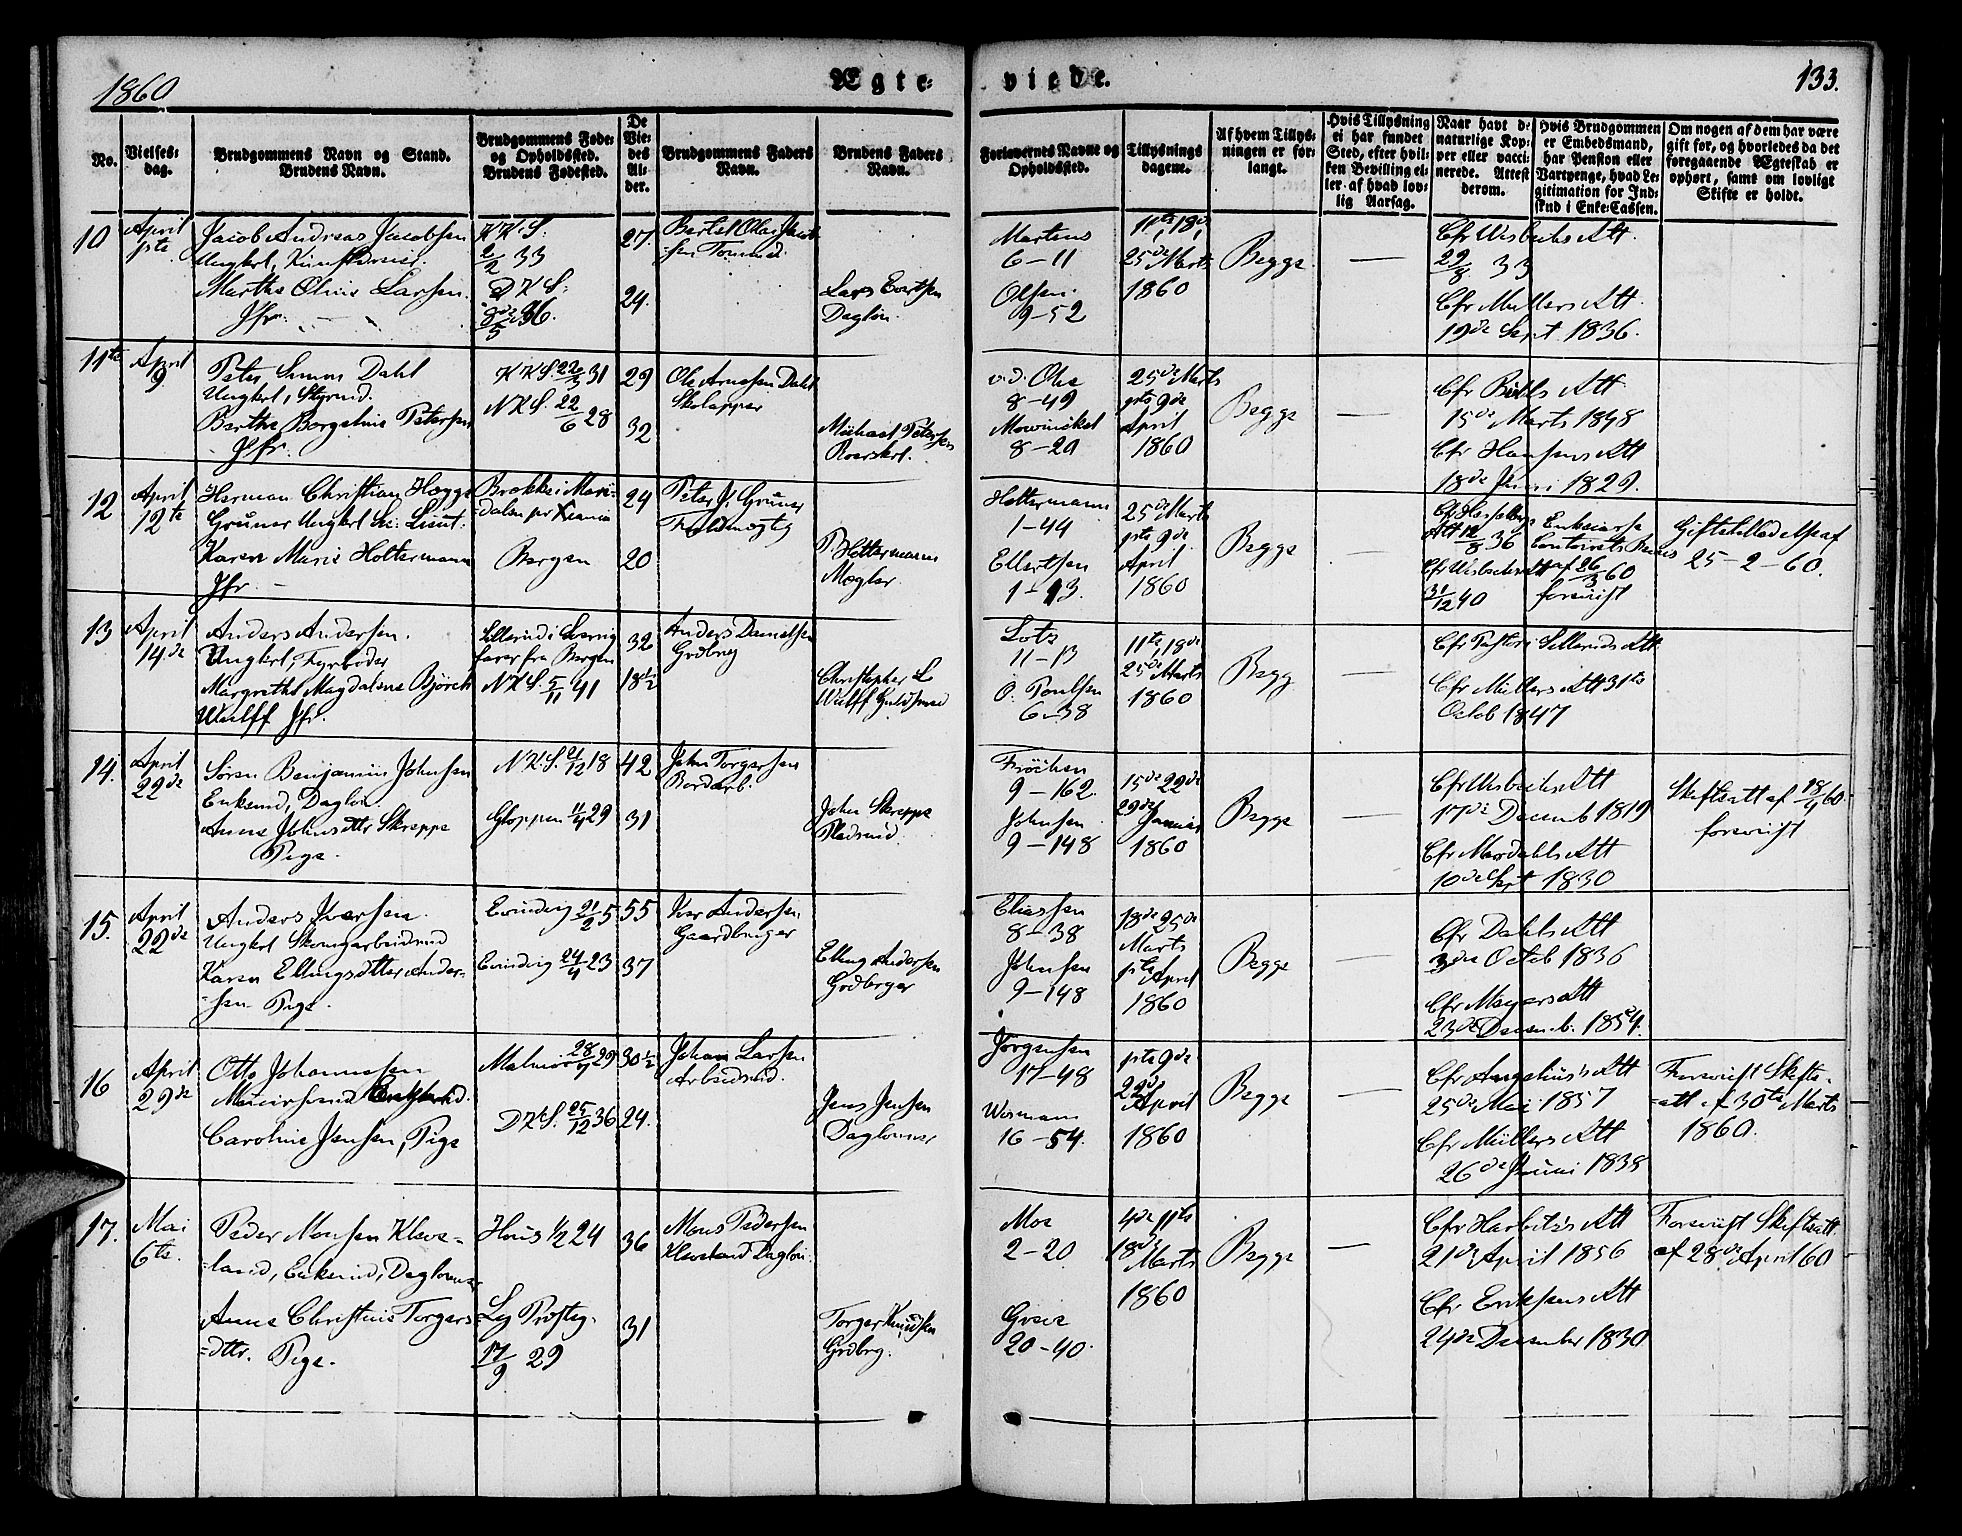 1860
Ægte-
viede.
133.
No.
Vielses-
dag.
Brudgommens Navn og Stand.
Brudens Navn.
Brudgommens Føde-
og Opholdssted.
Brudens Fødested.
De
Vie-
des
Al-
der.
Brudgommens Faders
Navn.
Brudens Faders
Navn.
Forlovernes Navne og
Opholdssted.
Tillysnings
dagene.
Af hvem Tillys-
ningen er for-
langt.
Hvis Tillysning
ei har fundet
Sted, efter hvil-
ken Bevilling el-
ler af hvad lov-
lig Aarsag.
Naar havt de
naturlige Kop-
per eller vacci-
nerede. Attest
derom.
Hvis Brudgommen
er Embedsmand,
har Pension eller
Vartpenge, hvad Le-
gitimation for Ind-
skud i Enke-Cassen.
Om nogen af dem har være
gift før, og hvorledes da det
foregaaende Ægteskab er
ophørt, samt om lovligt
Skifte er holdt.
10
April
1ste
Jacob Andreas Jacobsen
Ungkrl,
Marthe Oline Larsen.
Jfr.
KKS.
2/2 33
DKS.
36.
27.
24.
Bertel Olai Jacob-
sen Tømmd.
Lars Evertsen
Dagløn.
Martens
6-11
Olsen.
9-52
11te, 18de,
25de Marts
1860
Begge
Cfr Wisbechs Att.
29/8 33
Cfr Müllers Att
19de Sept 1836.
11te
April
9.
Peter Simon Dahl
Ungkrl, Styrmd.
Berthe Borgeline Petersen
Jfr.
KKS. 22/3 31
NKS. 22/6 28
29
32
Ole Arnesen Dahl
Skolapper
Michael Petersen
v.d. Ohe
8-49
Mowinckel
8-20
25de Marts
1ste 9de
April
1860
Begge
Cfr Att
15de Marts 1848
Cfr Hansens Att
18de Juni 1829.
12
April
12te
Herman Christian Hegge
Grüner Ungkrl Sec: Lieut.
Karen Marie Holtermann
Jfr.
Brekke i Mari-
dalen pr Xiania
Bergen
24
20
Peter J. Grüner
Holtermann
Mægler
Holtermann
1-44
Ellertsen
1-13.
25de Marts
1ste 9de
April
1860
Begge
Cfr Hesselbergs
Att 12/8 36
Cfr Wisbechs Att
31/12 40
Enkecasse
Contoirets Beviis
af 26/3 60
foreviist
Giftetilladelse af
25-2-60.
13
April
14de
Anders Andersen.
Ungkrl, Fyrbøder
Margrethe Magdalene Bjørck
Wulff Jfr.
Sillerud i Sverrig
farer fra Bergen
NKS. 5/11 41
32
18 1/2
Anders Danielsen
Grdbrg
Christopher L
Wulff Guldsmed
Lotz
11-13
O. Poulsen
6-38
11te, 18de
25de Marts
1860
Begg
Cfr Pastor i Silleruds Att.
Cfr Müllers Att 31te
Octob 1847
14.
April
22de
Søren Benjamin Johnsen
Enkemd, Dagløn.
Anne Johnsdttr Skreppe
Pige.
NKS. 2/12 18
Gloppen 11/4 29
42
31
John Torgersen
Bordarb.
John Skreppe
Pladsmd.
Fröchen
9-162.
Johnsen
9-148
15de 22de
29de
Januar
1860
Begge
Cfr Wisbechs Att
17de Decemb 1819
Cfr Mardahls Att
10de Sept 1830
Skifteatt af 18/4 60.
foreviist
15.
April
22de
Anders Iversen.
Ungkrl
Karen Ellingsdtter Ander-
=sen Pige.
Evindvig 21/2 5
Evindvig 24/4 23
55
37
Iver Andersen
Gaardbruger
Elling Andersen
Grdbruger
Eliassen
8-38
Johnsen
9-148
18de 25de
Marts
1ste April
1860
Begge
Cfr Dahls Att
3die Octob 1836
Cfr Meyers Att
23de Decemb. 1854.
16
April
29de
Otto Johannessen
Muursvend Enkemd.
Caroline Jensen, Pige
Malmöe 28/4 29
DKS. 25/12 36
30 1/2
24.
Johan Larsen
Arbeidsmd.
Jens Jensen
Dagløner
Jørgensen
17-48
Wismann
16-54.
1ste 9de
22de
April
1860
Begge
Cfr Angelius's Att
25de Mai 1857
Cfr Müllers Att
26de Juni 1838
Foreviist Skifte-
=att af 30te Marts
1860.
17.
Mai
6te.
Peder Monsen Kleve-
=land, Enkemd, Dagløner
Anne Christine Torgers=
=dttr. Pige.
Hous 1/2 24
Leg. Præsteg.
17/9 29
36
31
Mons Pedersen
Kleveland Dagløn.
Torger Knudsen
Grdbrg.
Moe
2-20
Greve
20-40.
4de 11te
18de Marts
1860
Begge
Cfr Harbitz's Att
21de April 1856
Cfr Eriksens Att
24de December 1830
Foreviist Skifteatt.
af 28de April 60